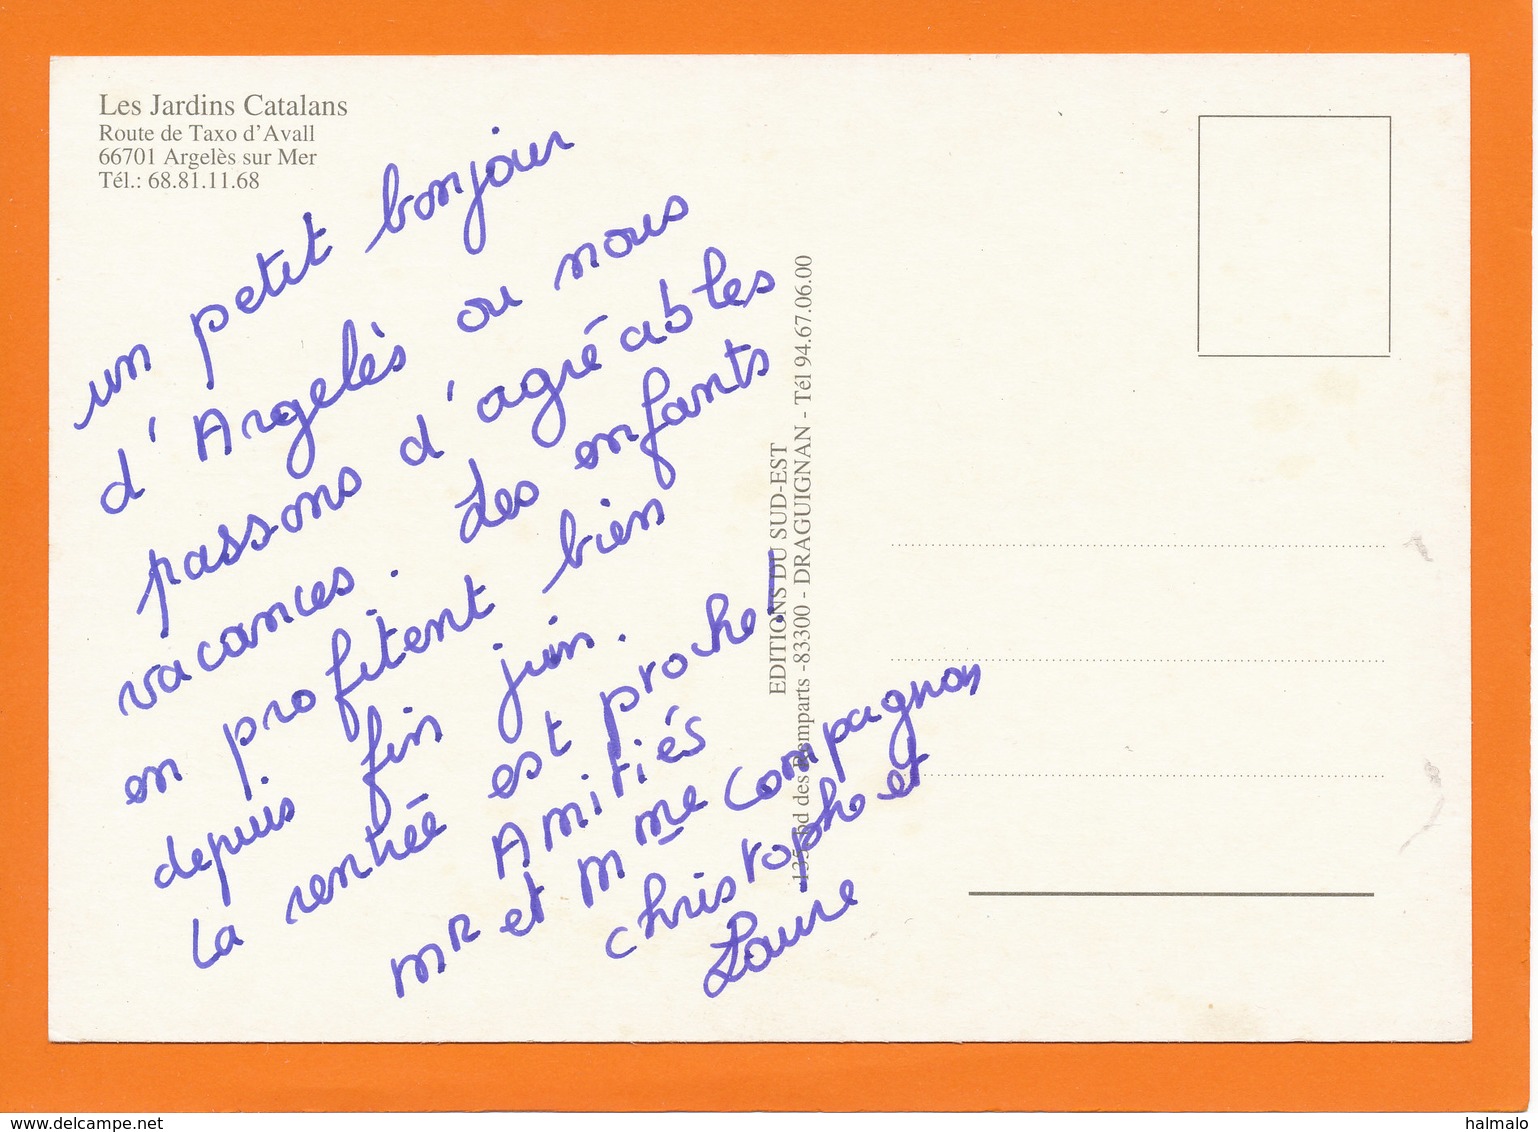 Les Jardins Catalans
Route de Taxo d'Avall
66701 Argelès sur Mer
Tél.: 68.81.11.68
un petit bonjour
d'Argelès ou nous
passons d'agréables
vacances. Les enfants
en profitent bien
depuis fin juin.
La rentrée est proche!
Amitiés
Mr et Mme Compagnon
christophe et
Laure
EDITIONS DU SUD-EST
135, bd des Remparts -83300 - DRAGUIGNAN - Tél 94.67.06.00
www.delcampe.net
halmalo